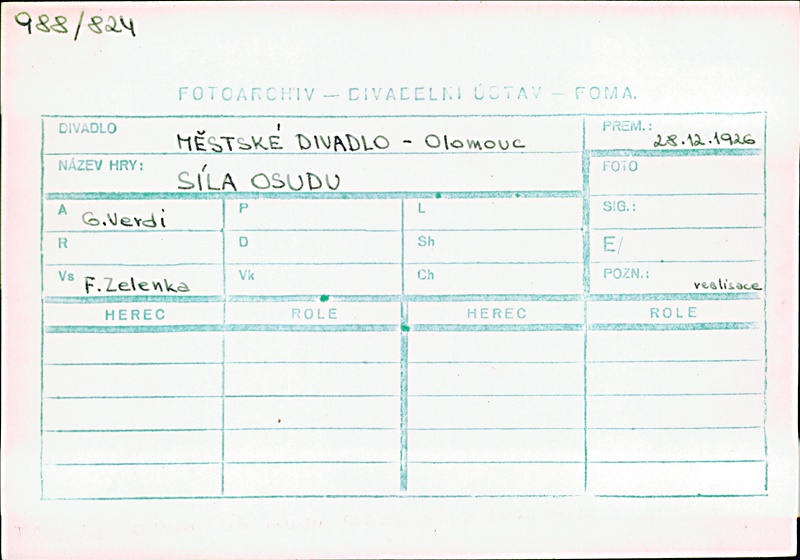 988/824
FOTOARCHIV — DIVADELNÍ ÚSTAV — FOMA.
DIVADLO MĚSTSKÉ DIVADLO - Olomouc PREM.: 28.12.1926
NÁZEV HRY: SÍLA OSUDU FOTO
A G.Verdi P L SIG.:
R D Sh E/
Vs F.Zelenka Vk Ch POZN.: realisace
HEREC ROLE HEREC ROLE